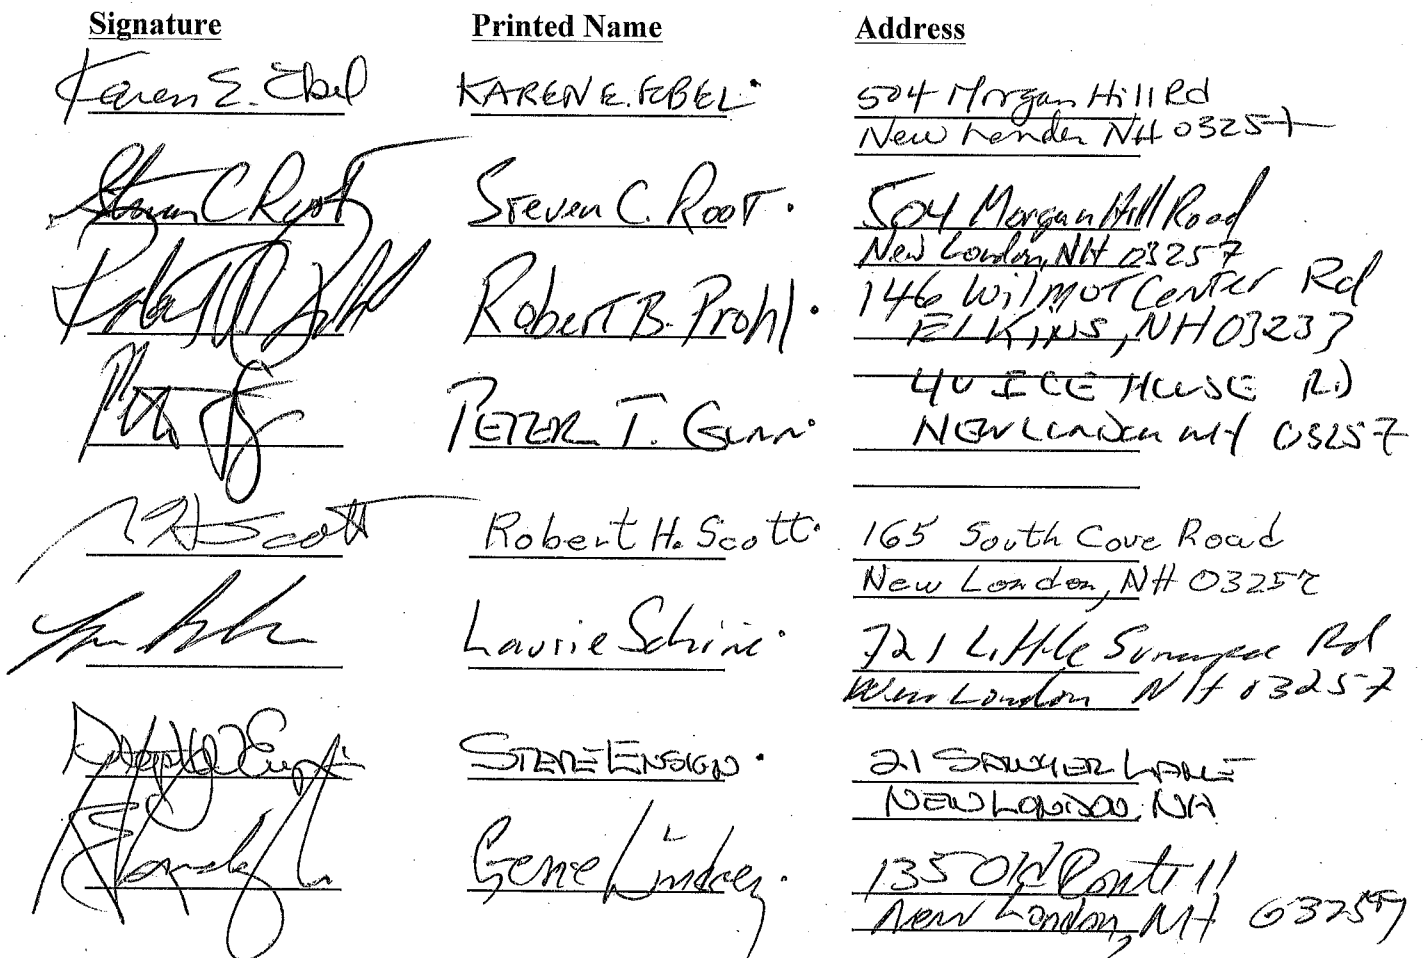 Signature Printed Name Address
Karen E. Ebel KAREN E. EBEL 504 Morgan Hill Rd
New London NH 03257
Steven C Root Steven C. Root 504 Morgan Hill Road
New London, NH 03257
Robert B. Prohl 146 Wilmot Center Rd
ELKINS, NH 03233
PETER T. Gunn 40 ICE HOUSE RD
NEW LONDON NH 03257
RH Scott Robert H. Scott 165 South Cove Road
New London, NH 03257
Laurie Schive 721 Little Sunapee Rd
New London NH 03257
STEVE ENSIGN 21 SAWYER LANE
NEW LONDON, NH
Gene Lindsey 135 Old Route 11
New London, NH 03257